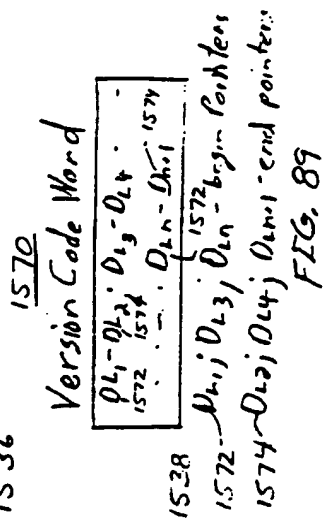 1536
1570
Version Code Word
DL1 - DL2; DL3 - DL4 . .
1572 1574
. . - . DLn - DLn+1 1574
1572
1538
1572 - DL1; DL3; DLn - begin Pointers
1574 - DL2; DL4; DLn+1 - end pointers
FIG. 89